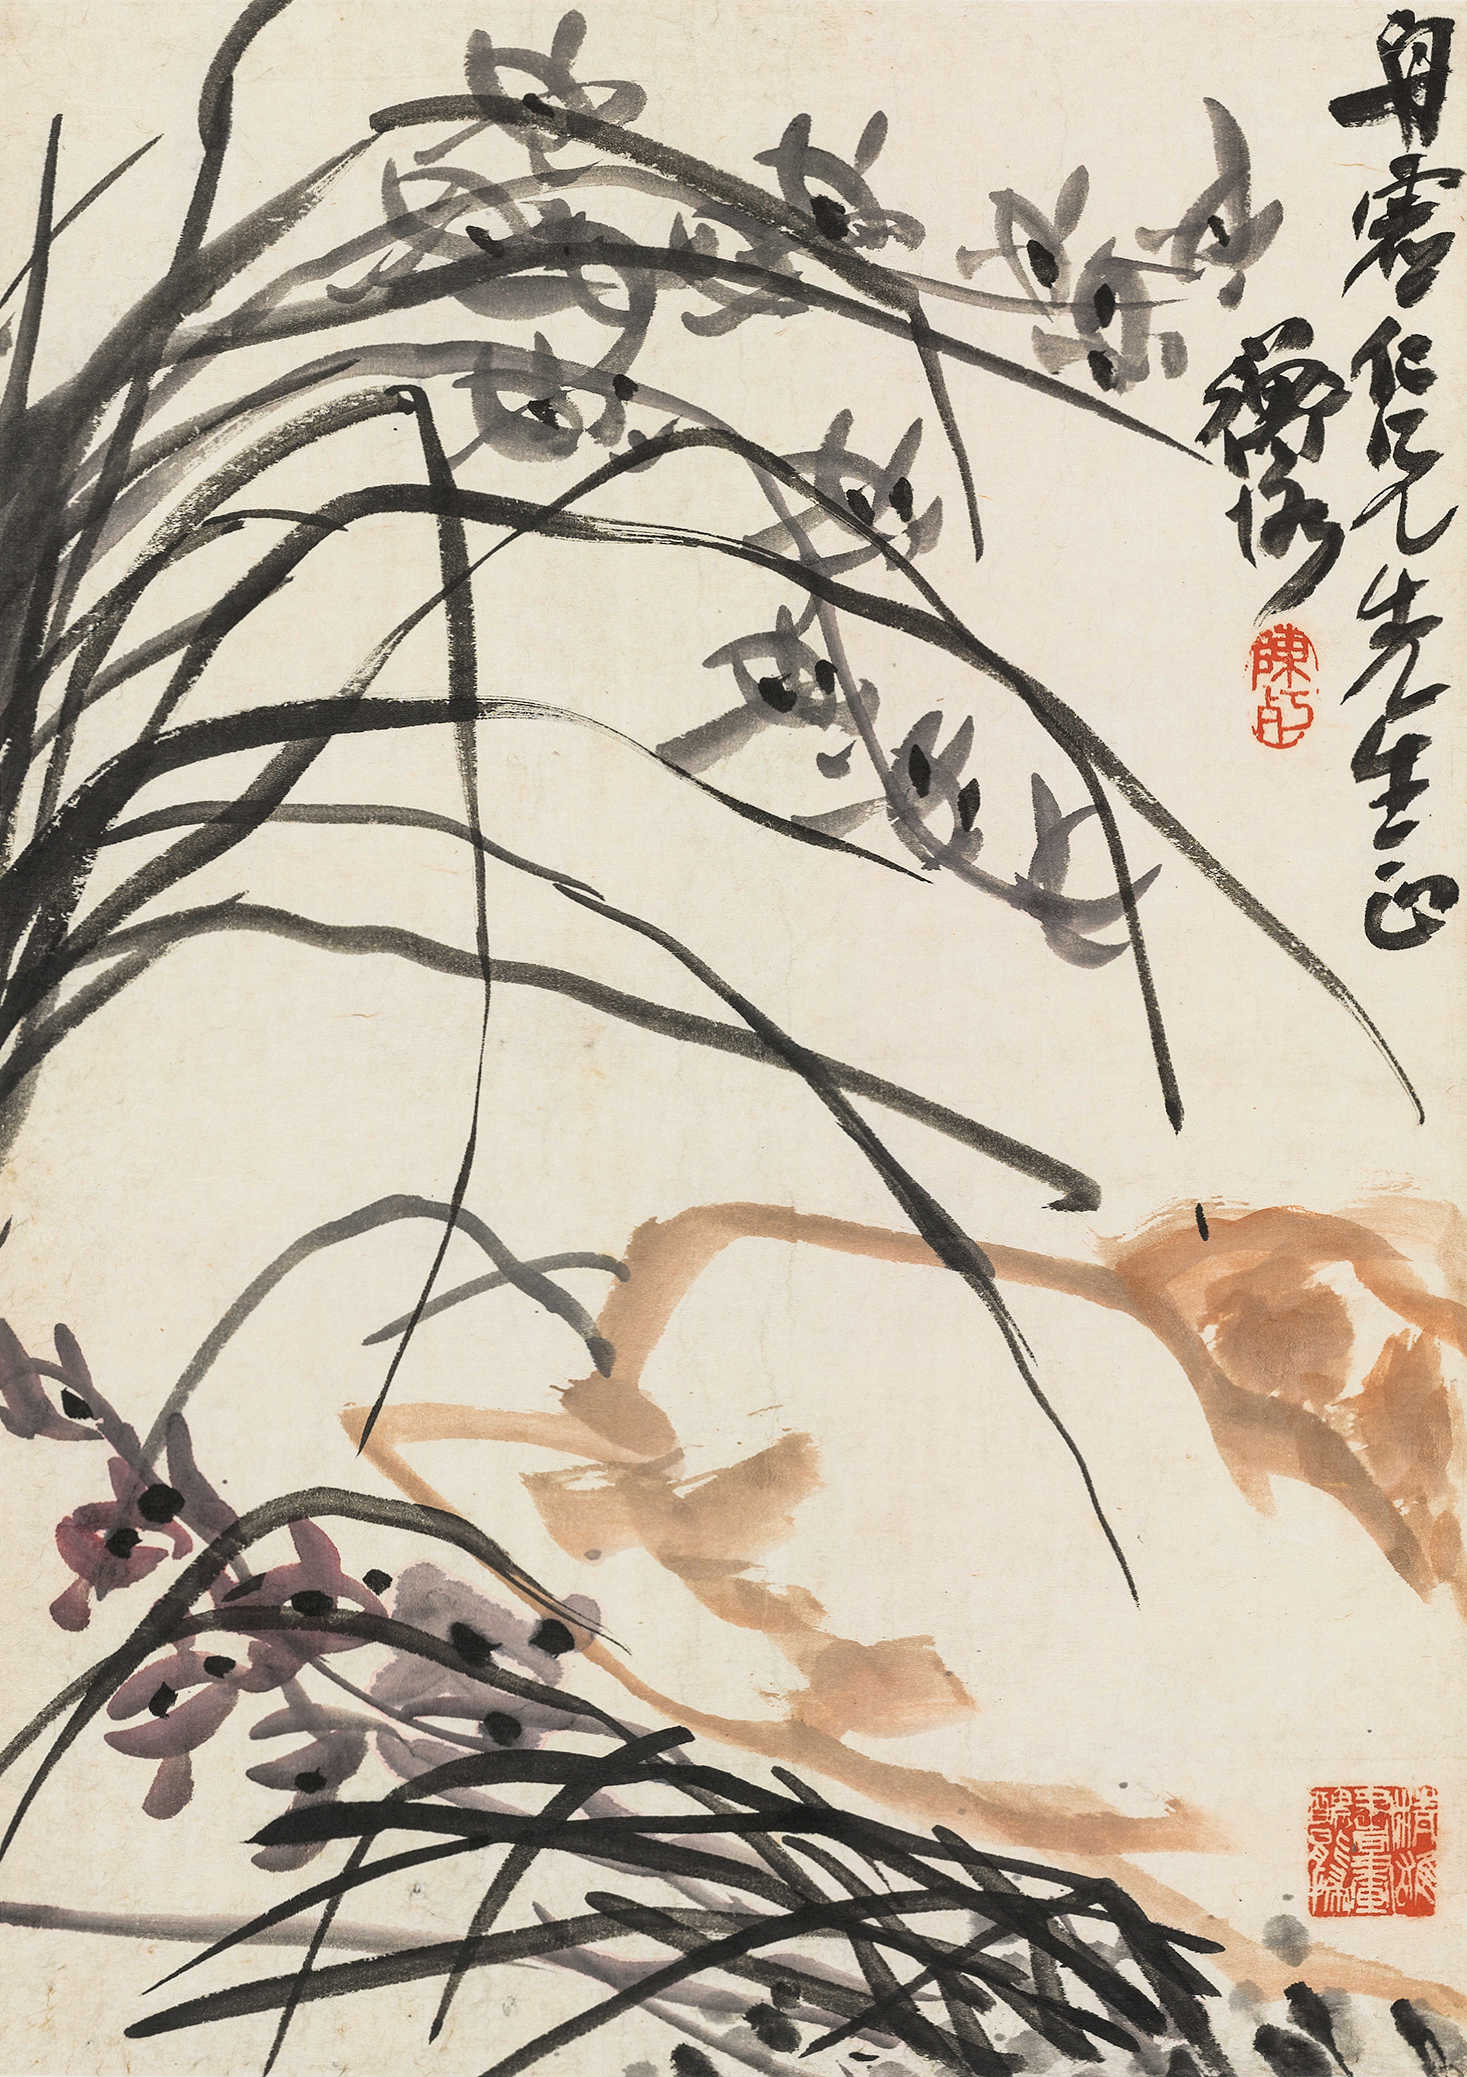 舟虚仁兄先生正
衡恪
陳印